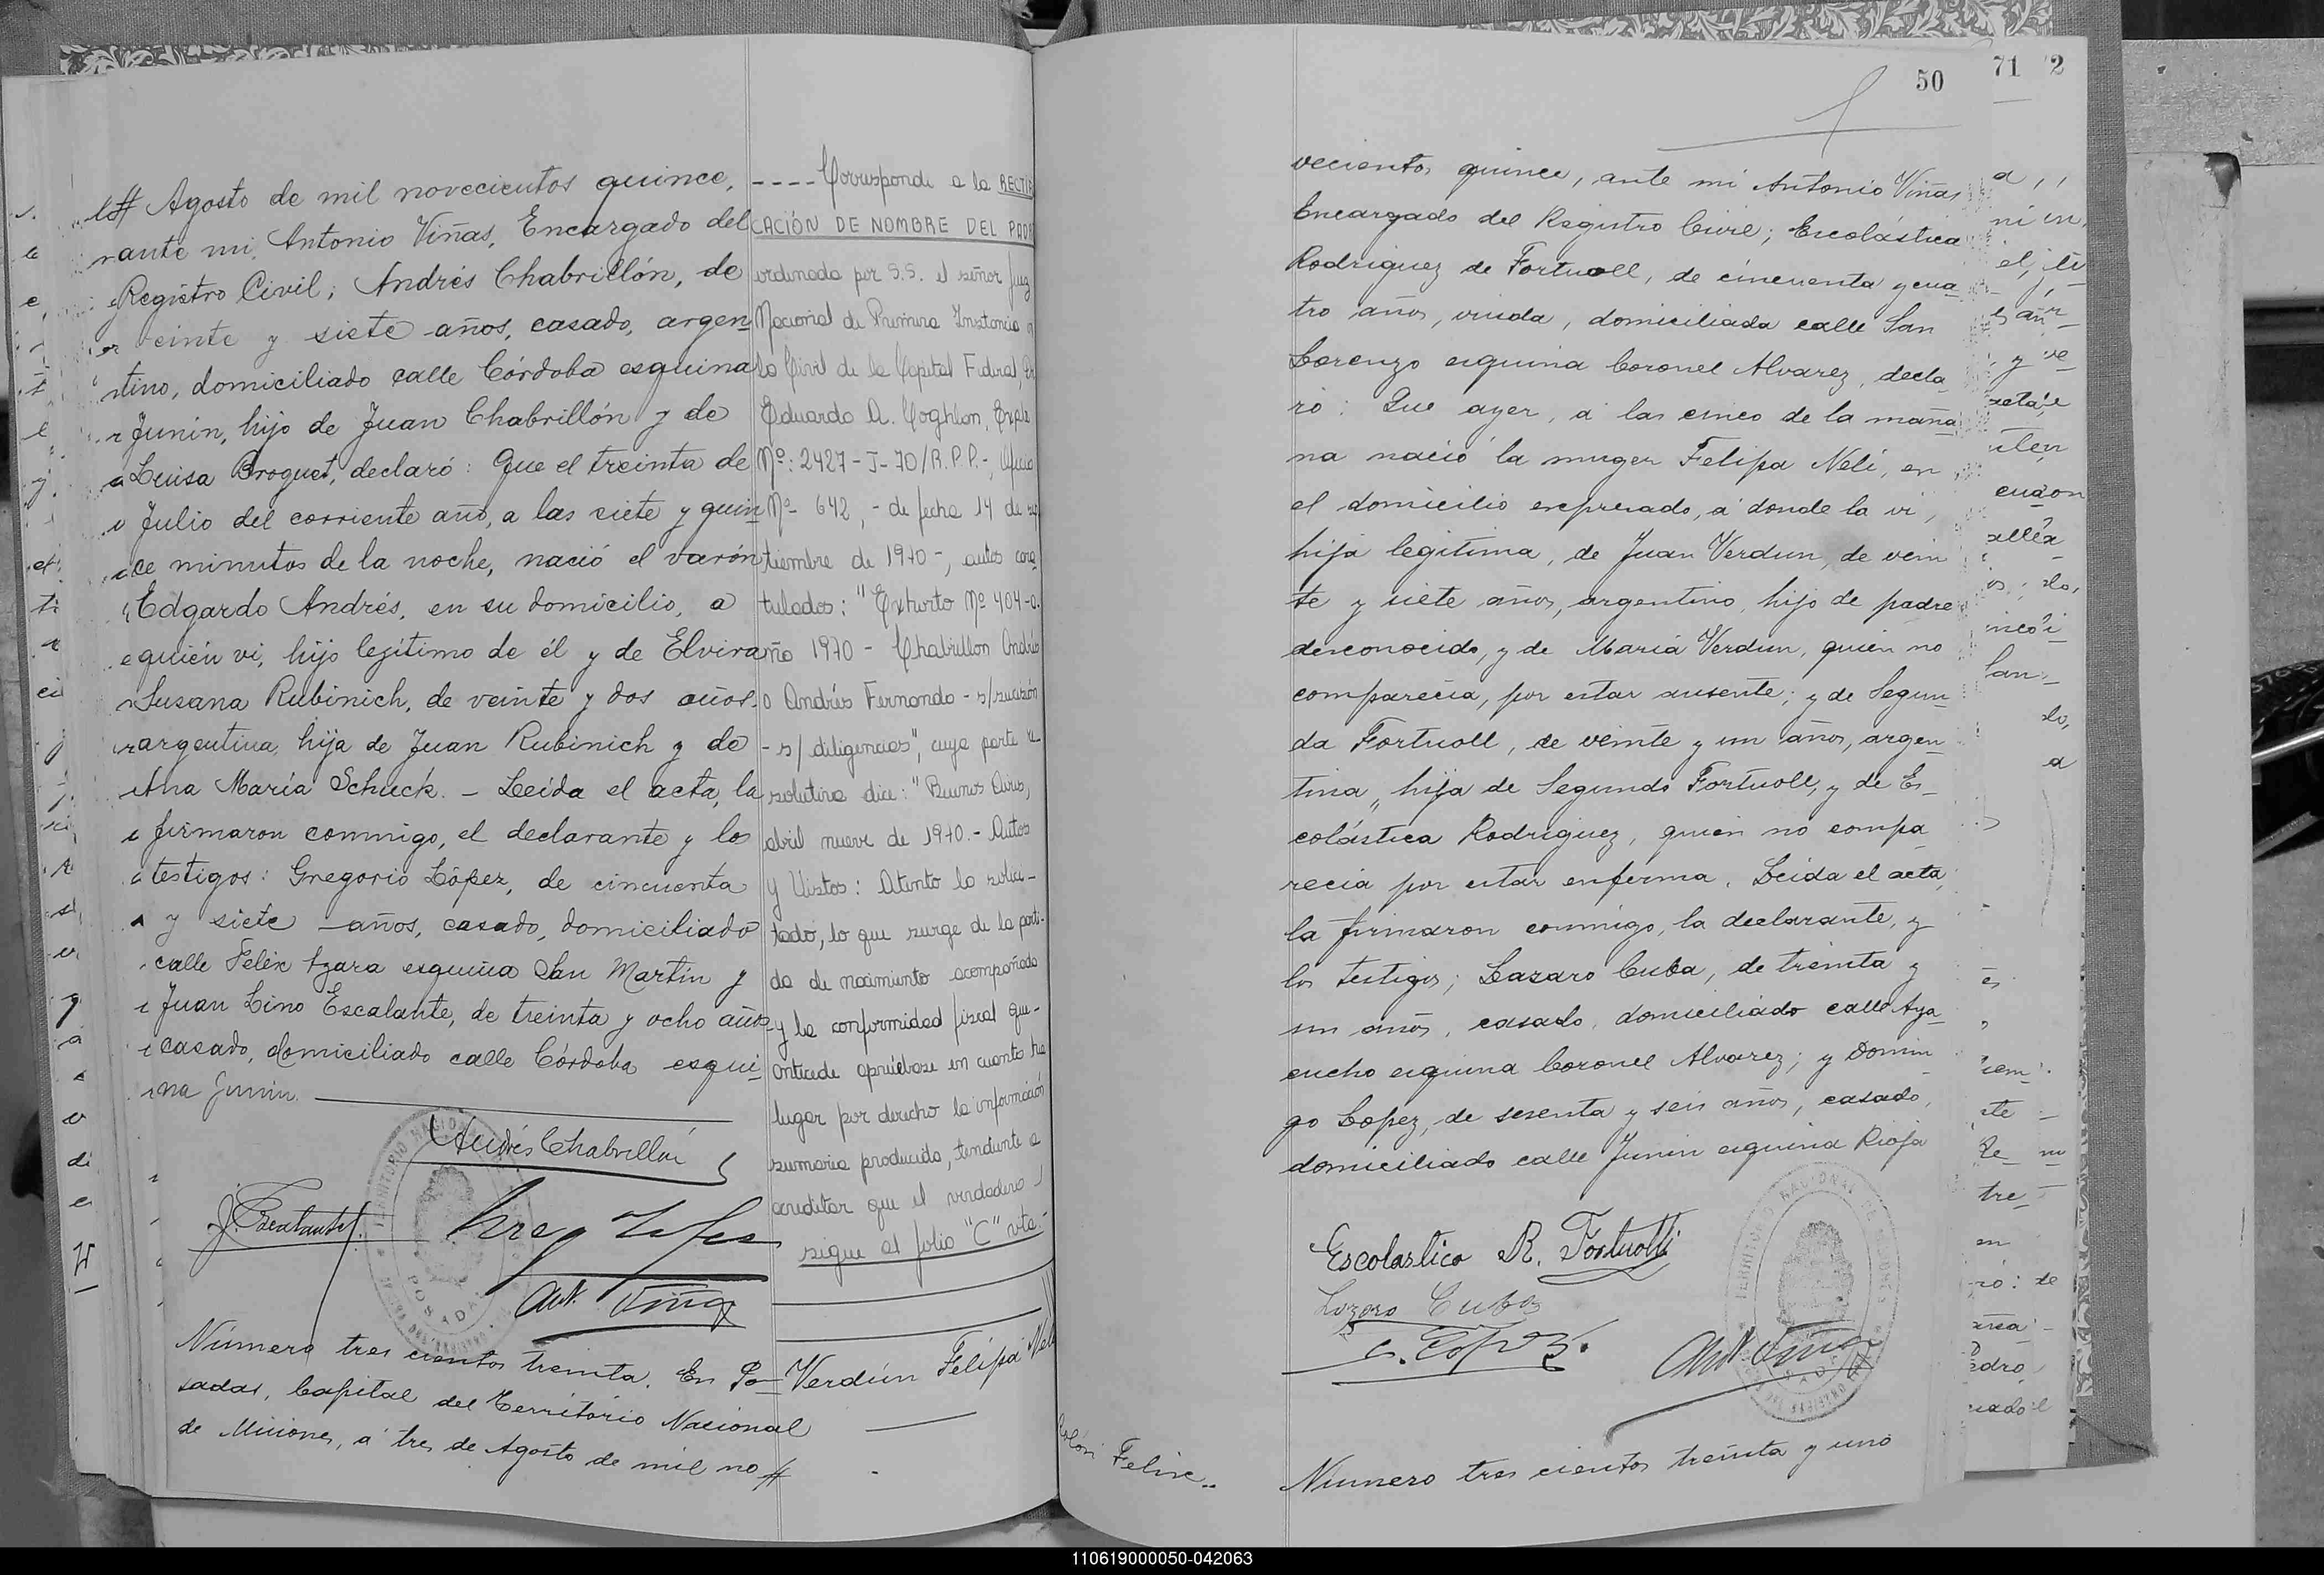 # Agosto de mil novecientos quince,
ante mi, Antonio Viñas, Encargado del
Registro Civil; Andrés Chabrillón, de
veinte y siete años, casado, argen-
tino, domiciliado calle Córdoba esquina
Junín, hijo de Juan Chabrillón y de
Luisa Broquet, declaró: Que el treinta de
Julio del corriente año, a las siete y quin-
ce minutos de la noche, nació el varón
Edgardo Andrés, en su domicilio, a
quién vi, hijo legítimo de él y de Elvira
Susana Rubinich, de veinte y dos años,
argentina, hija de Juan Rubinich y de
Ana María Schuck. - Leída el acta, la
firmaron conmigo, el declarante y los
testigos: Gregorio López, de cincuenta
y siete años, casado, domiciliado
calle Felix Azara esquina San Martín y
Juan Lino Escalante, de treinta y ocho años
casado, domiciliado calle Córdoba esqui-
na Junin.
Andrés Chabrillón
J. Escalante
Greg Lopez
Ant. Viñas
TERRITORIO NACIONAL
POSADAS
Número tres cientos treinta. En Po-
sadas, Capital del Territorio Nacional
de Misiones, á tres de Agosto de mil no #
---- Corresponde a la RECTIFI
CACIÓN DE NOMBRE DEL PADR
ordenada por S.S. el señor Juez
Nacional de Primera Instancia
lo Civil de la Capital Federal, Dr.
Eduardo A. Coghlan, Expte
Nº: 2427-J-70/R.P.P.-, Oficio
Nº 642,- de fecha 14 de se
tiembre de 1970-, autos cara
tulados: "Exhorto Nº 404-a
ño 1970 - Chabrillon Andrés
o Andrés Fernando - s/sucesión
- s/ diligencias", cuya parte re
solutiva dice: "Buenos Aires,
abril nueve de 1970.- Autos
y Vistos: Atento lo solici-
tado, lo que surge de la parti-
da de nacimiento acompañada
y la conformidad fiscal que-
antecede apruébase en cuanto ha
lugar por derecho la información
sumaria producida, tendente a
acreditar que el verdadero
sigue al folio "C" vta.-
Verdún Felipa Neli
50
71
2
vecientos quince, ante mi Antonio Viñas
Encargado del Registro Civil; Escolástica
Rodriguez de Fortuoll, de cincuenta y cua-
tro años, viuda, domiciliada calle San
Lorenzo esquina Coronel Alvarez, decla-
ró: Que ayer, á las cinco de la maña-
na nació la muger Felipa Neli, en
el domicilio expresado, á donde la vi,
hija legitima, de Juan Verdun, de vein-
te y siete años, argentino, hijo de padre
desconocido, y de María Verdun, quien no
comparecia, por estar ausente; y de Segun-
da Fortuoll, de veinte y un años, argen-
tina, hija de Segundo Fortuoll, y de Es-
colástica Rodriguez, quien no compa-
recia por estar enferma. Leida el acta,
la firmaron conmigo, la declarante, y
los testigos; Lazaro Cuba, de treinta y
un años, casado, domiciliado calle Aya-
cucho esquina Coronel Alvarez; y Domin-
go Lopez, de sesenta y seis años, casado,
domiciliado calle Junin esquina Rioja
Escolastica R. Fortuoll
Lazaro Cuba
Lopez
Ant Viñas
TERRITORIO NACIONAL DE MISIONES
Colón Felix..
Número tres cientos treinta y uno
110619000050-042063